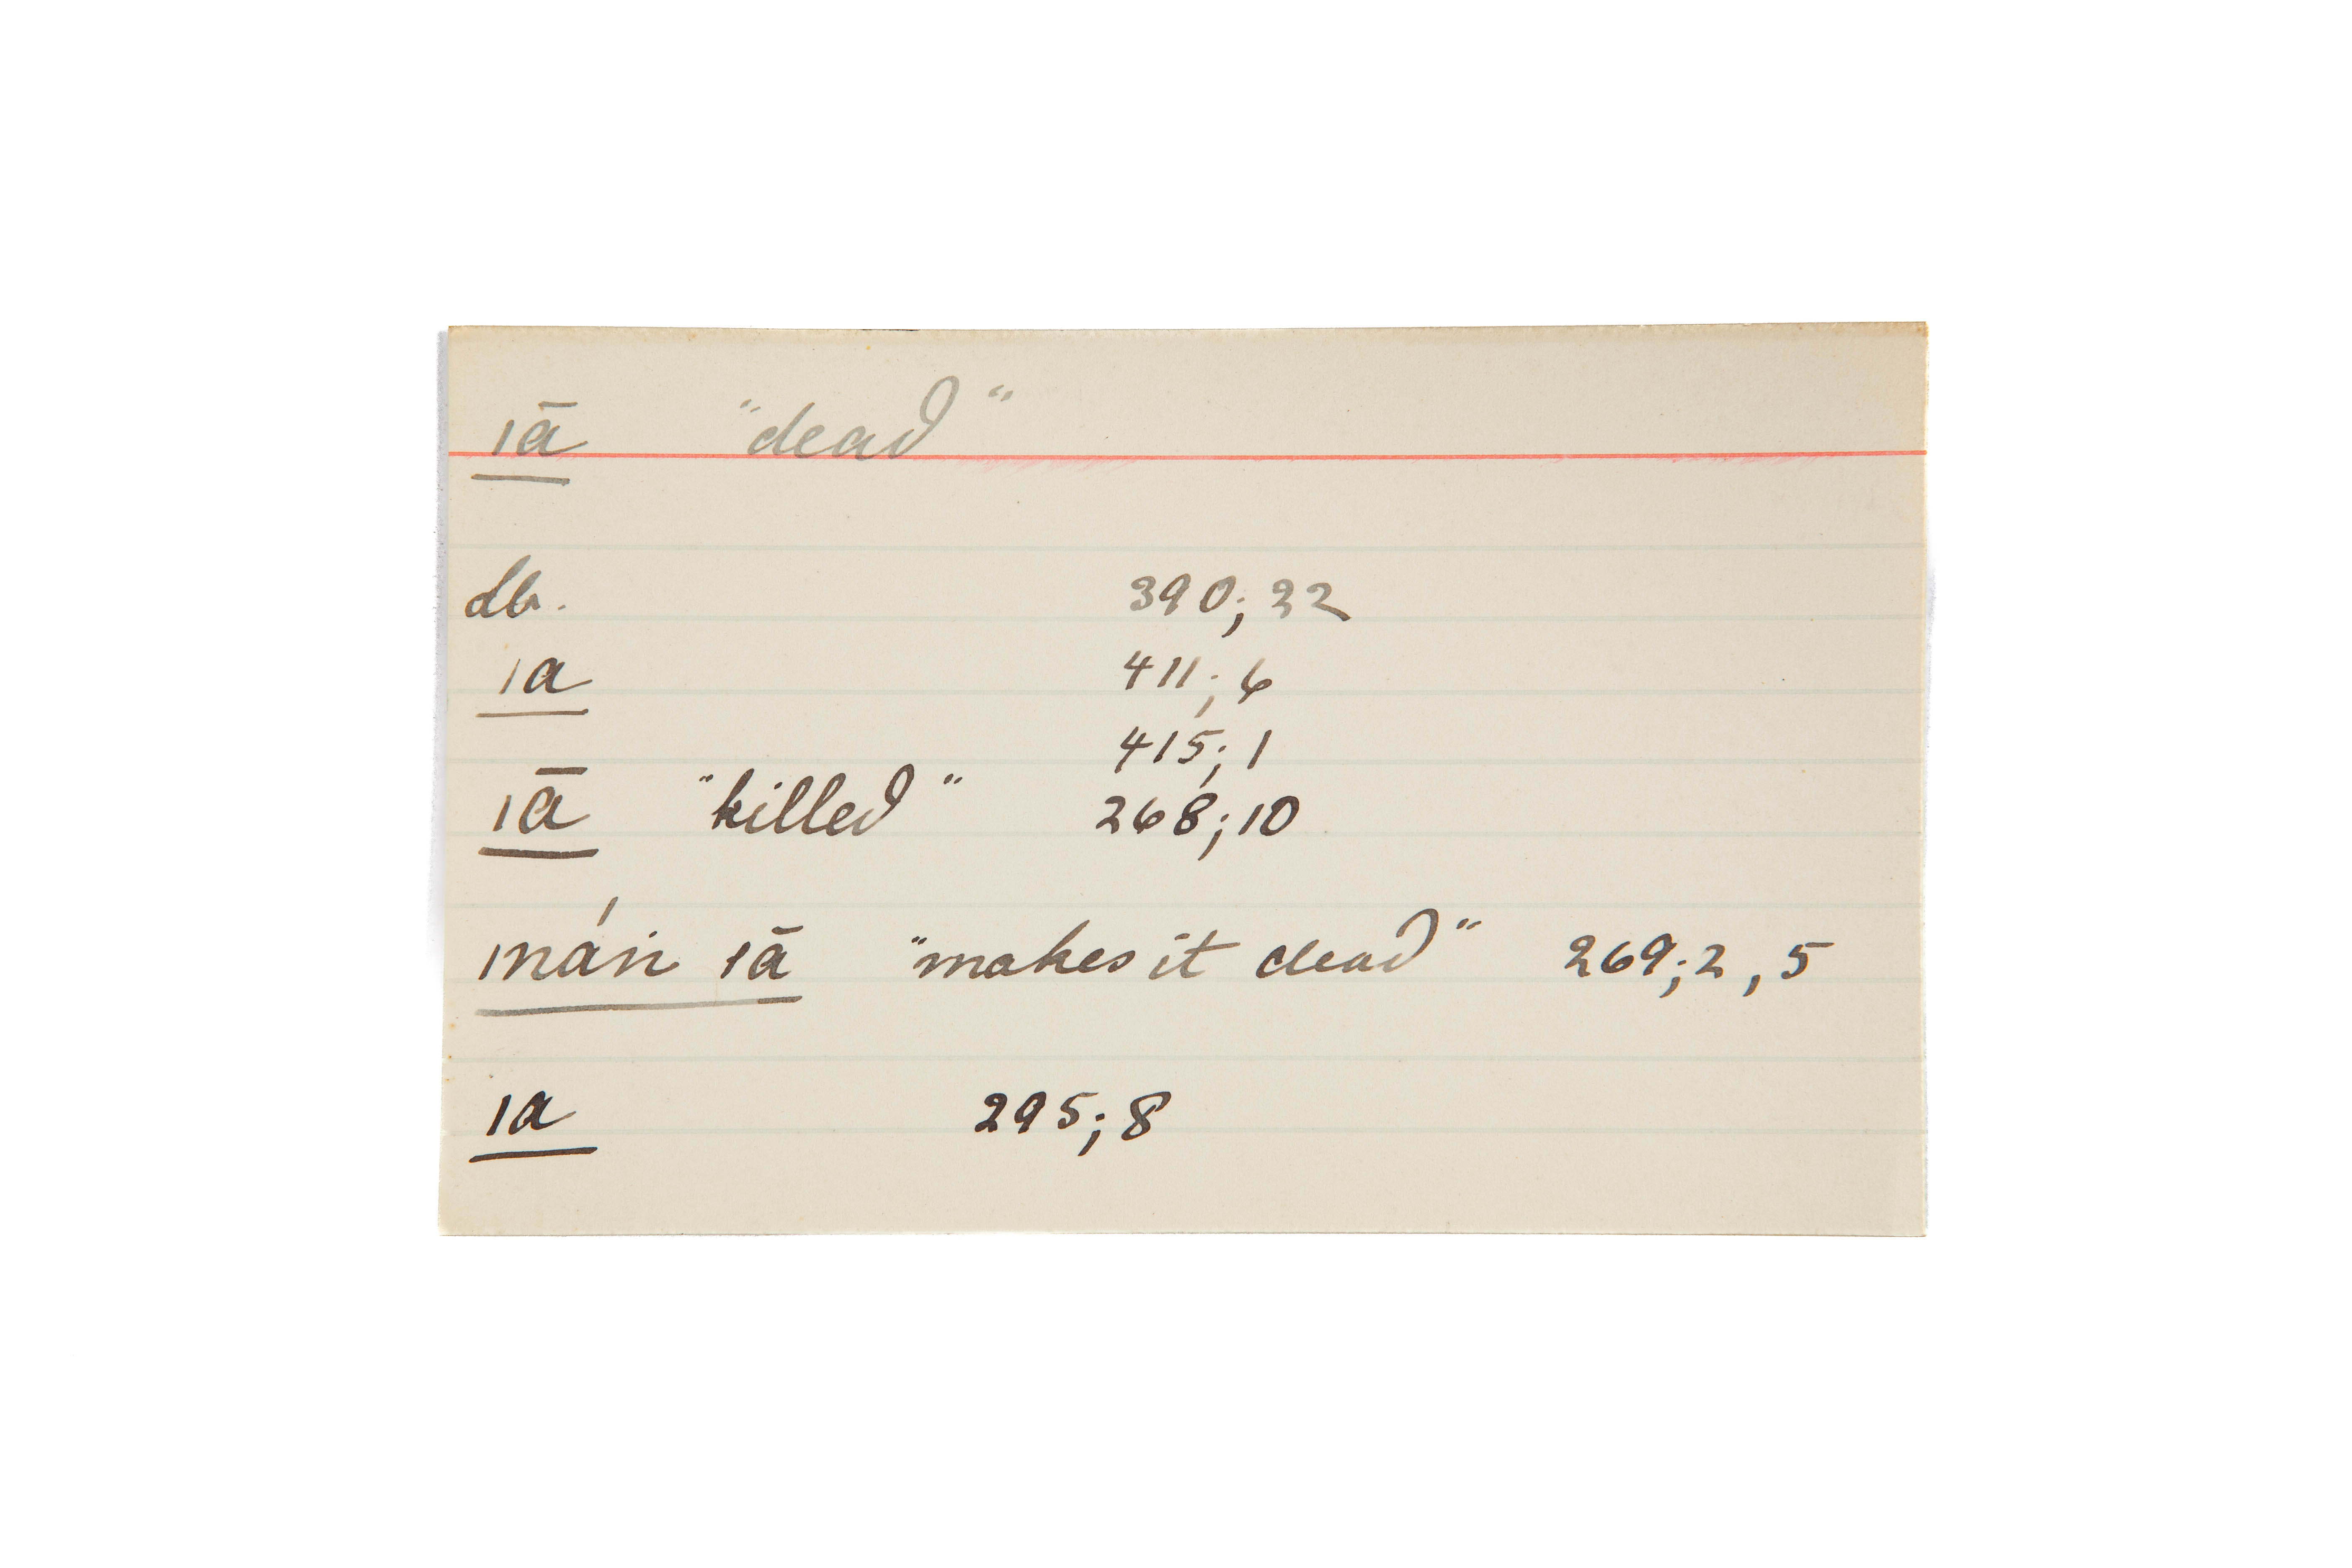 ıā "dead"
390; 22
ıa 411; 6
415; 1
ıā "killed" 268; 10
mán ıā "makes it dead" 269; 2, 5
ıa 295; 8